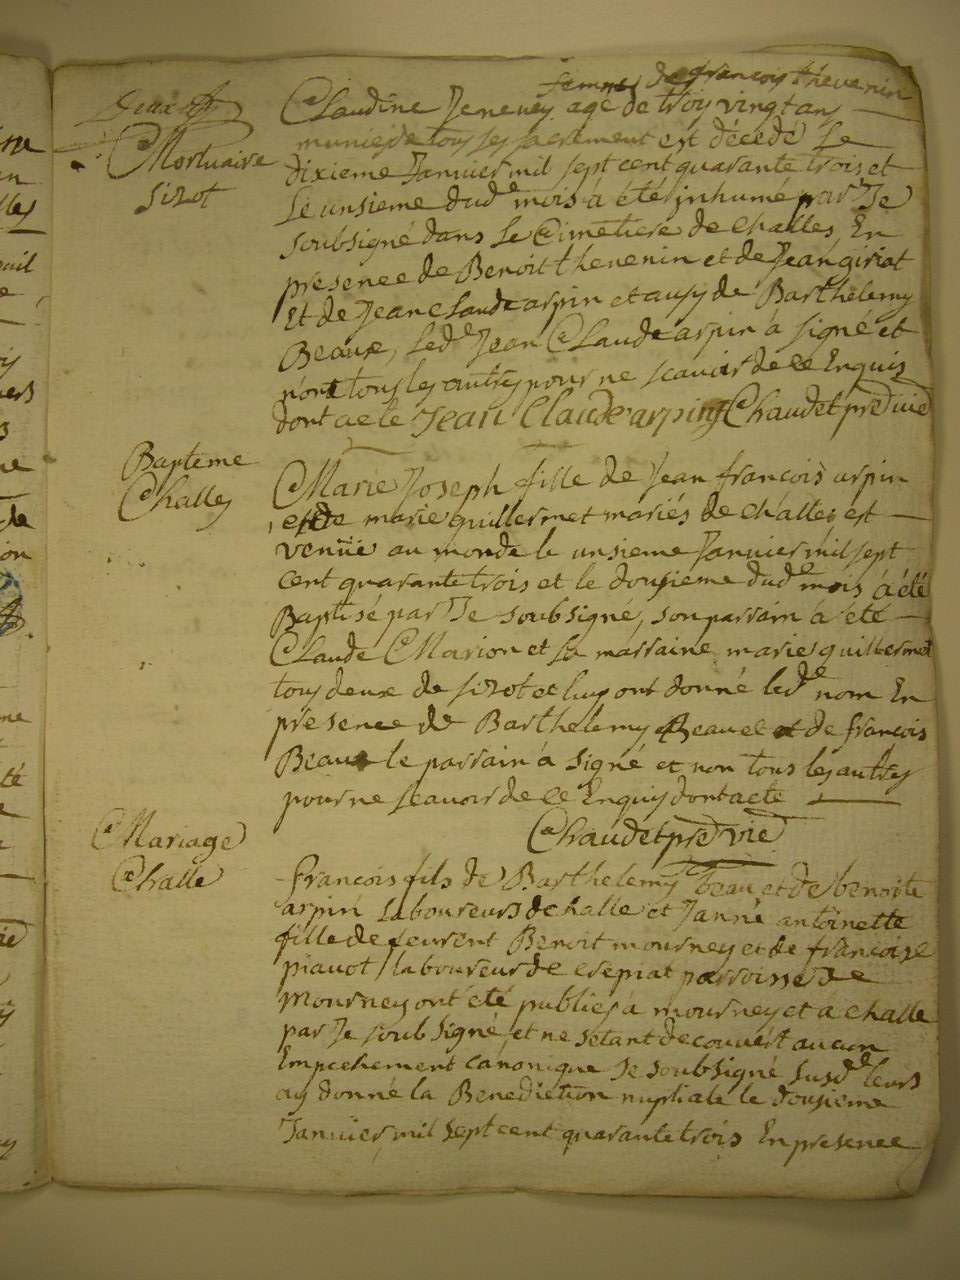 femme de françois thevenin
Claudine Jeneney agé de trois vingt ans
munie de tous ses sacrement est décedé Le
Mortuaire
dixieme Janvier mil sept cent quarante trois et
Sizot
Le unsieme dud.e mois à été inhumé par Je
soubsigné dans Le Cimetiere de challes En
presence de Benoit thevenin et de Jean giriat
Et de Jean claude arpin et ausy de Barthelemy
Beaux, Led.e Jean Claude arpin à signé et
non tous les autres pour ne scavoir de ce Enquis
dont acte Jean Claude arpin Chaudet pred vié
Bapteme
Challes
Marie Joseph fille de Jean françois arpin
et de marie guillermet mariés de challes est
venüe au monde le unsieme Janvier mil sept
cent quarante trois et le dousieme dud.e mois à été
Baptisé par Je soubsigné, son parrain à été
Claude Marion et sa marraine marie guillermet
tous deux de sizot et luy ont donné led.e nom En
presence de Barthelemy Beaux et de françois
Beaux le parrain à signé et non tous les autres
pour ne scavoir de ce Enquis dont acte
Chaudet pred vié
Mariage
Challe
françois fils de Barthelemy beau et de benoite
arpin Laboureurs de challe et Janne antoinette
fille de feu Benoit mourney et de françoise
piavot laboureur de crepiat parroisse de
mourney ont été publiés à mourney et à challe
par Je soubsigné et ne setant decouvert aucun
Empechement canonique Je soubsigné susd.e leurs
ay donné la Benediction nuptiale le dousieme
Janvier mil sept cent quarante trois En presence